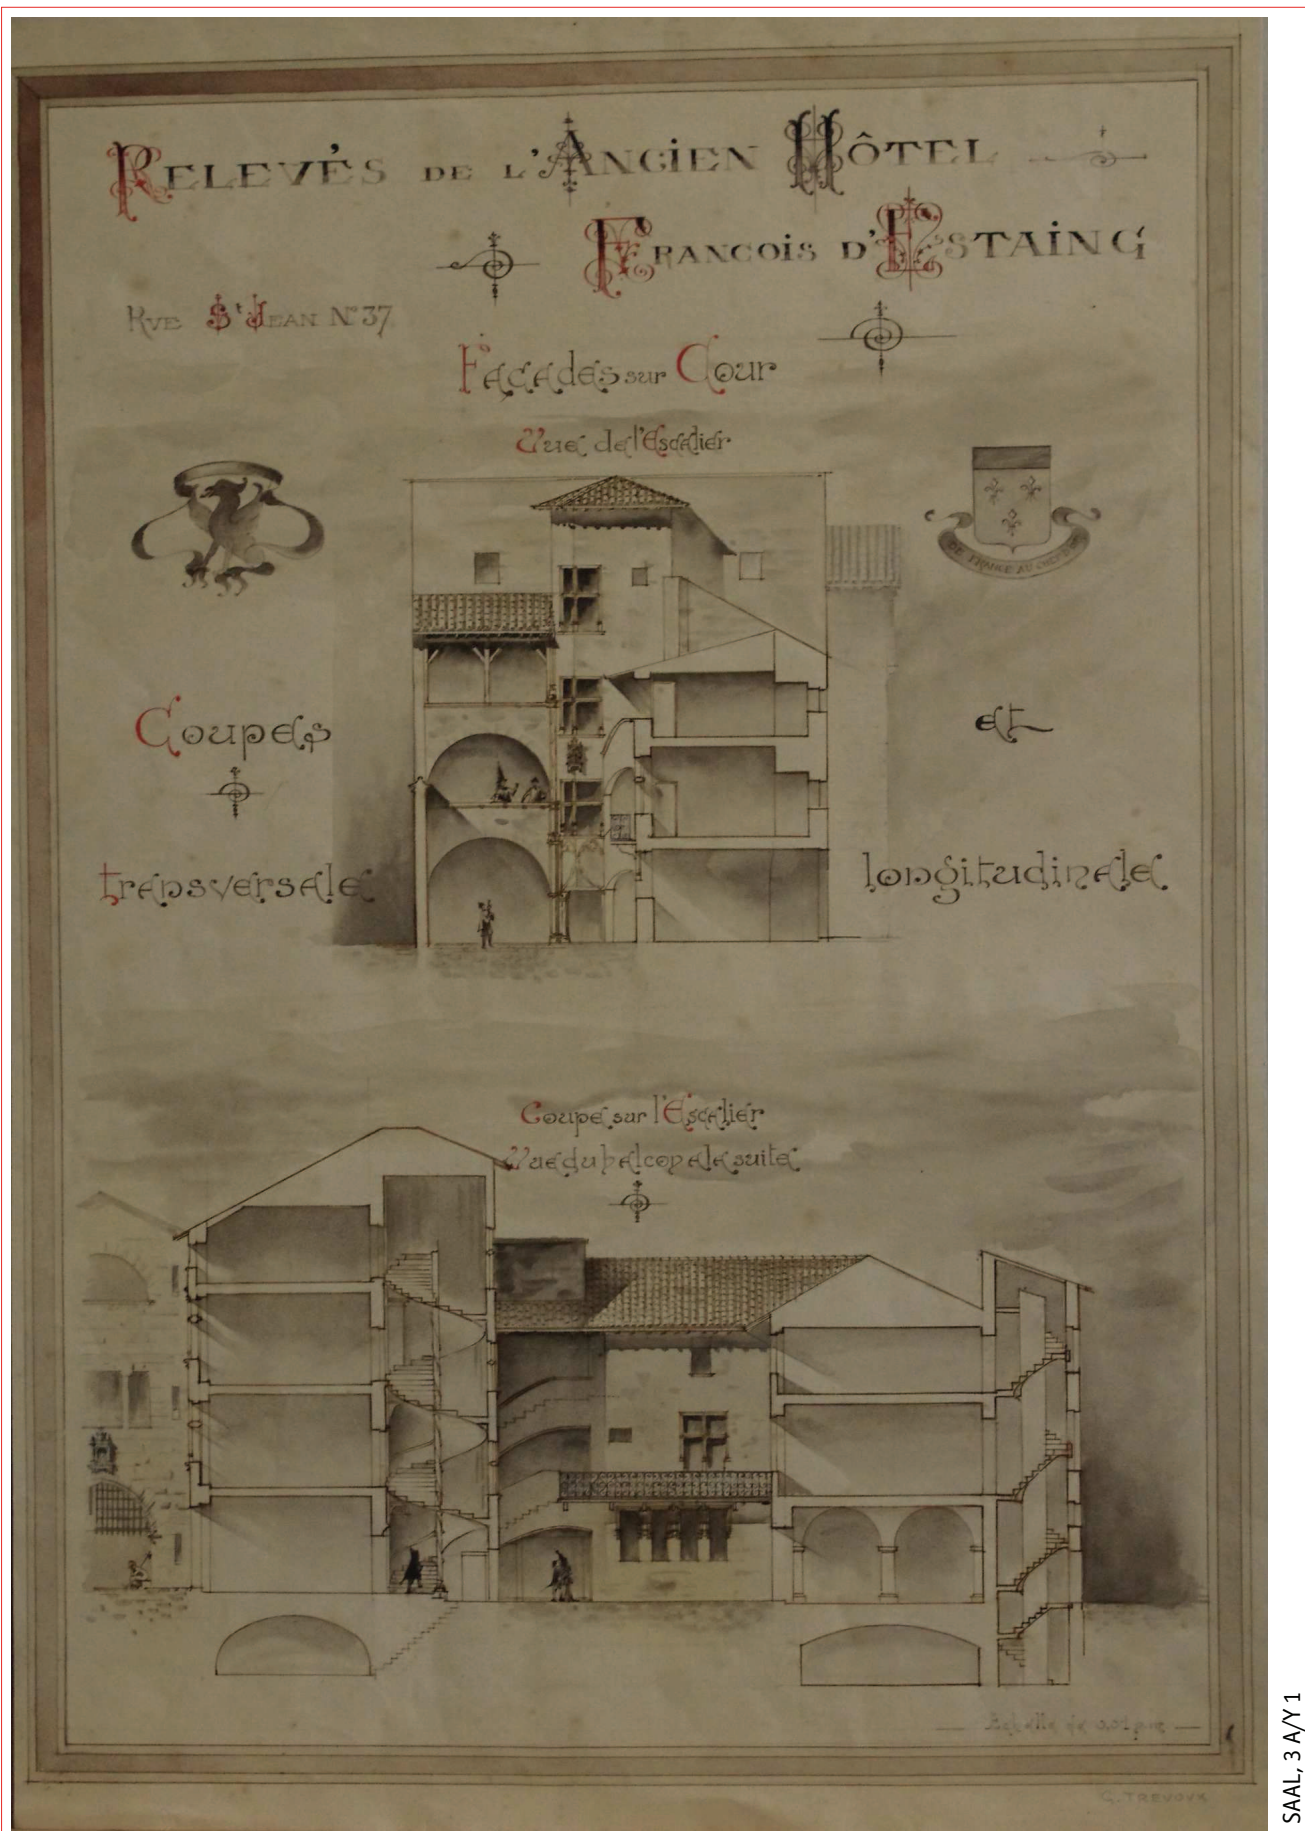 RELEVÉS DE L'ANCIEN HÔTEL
FRANCOIS D'ESTAING
RVE St JEAN No 37
Façades sur Cour
Vue de l'Escalier
DE FRANCE AU CHEF
Coupes
et
transversale
longitudinale
Coupe sur l'Escalier
Vue du balcon a la suite
G. TREVOVX
SAAL, 3 A/Y 1